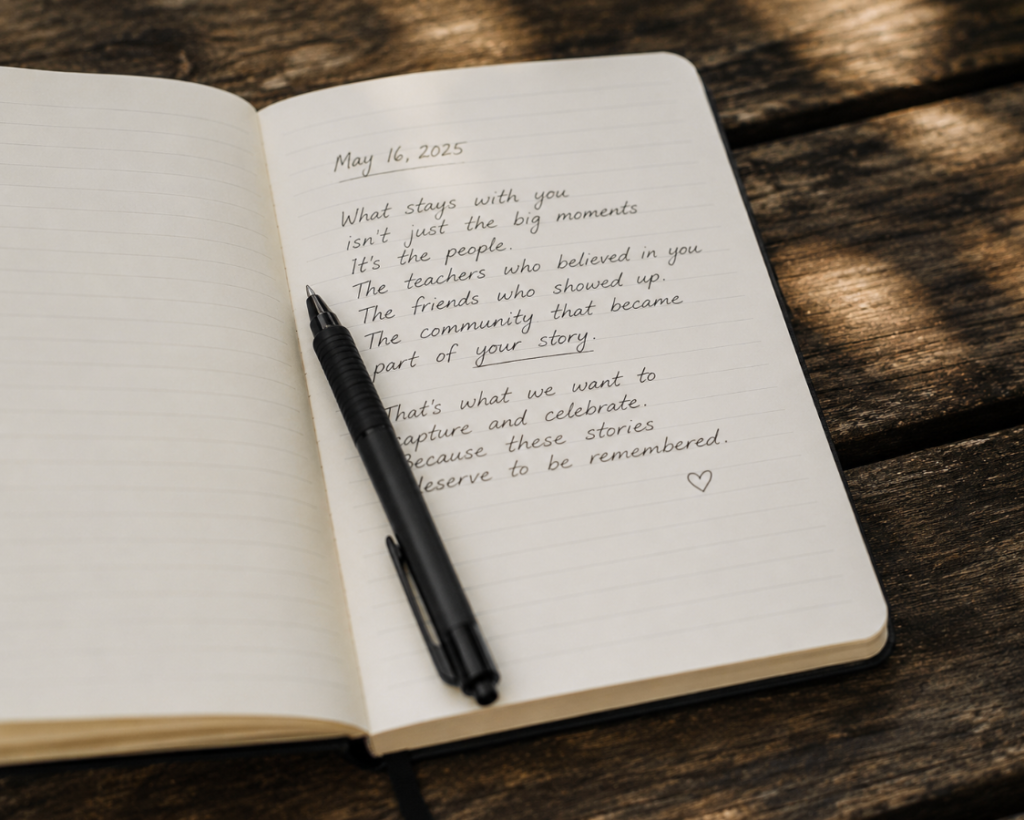 May 16, 2025
What stays with you
isn't just the big moments
It's the people.
The teachers who believed in you
The friends who showed up.
The community that became
part of your story.
That's what we want to
capture and celebrate.
Because these stories
deserve to be remembered.